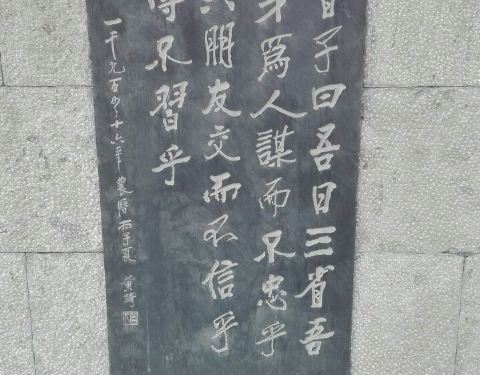 子曰吾日三省吾
身爲人謀而不忠乎
朋友交而不信乎
不習乎
一千九百九十六年 農曆丙子夏 黄